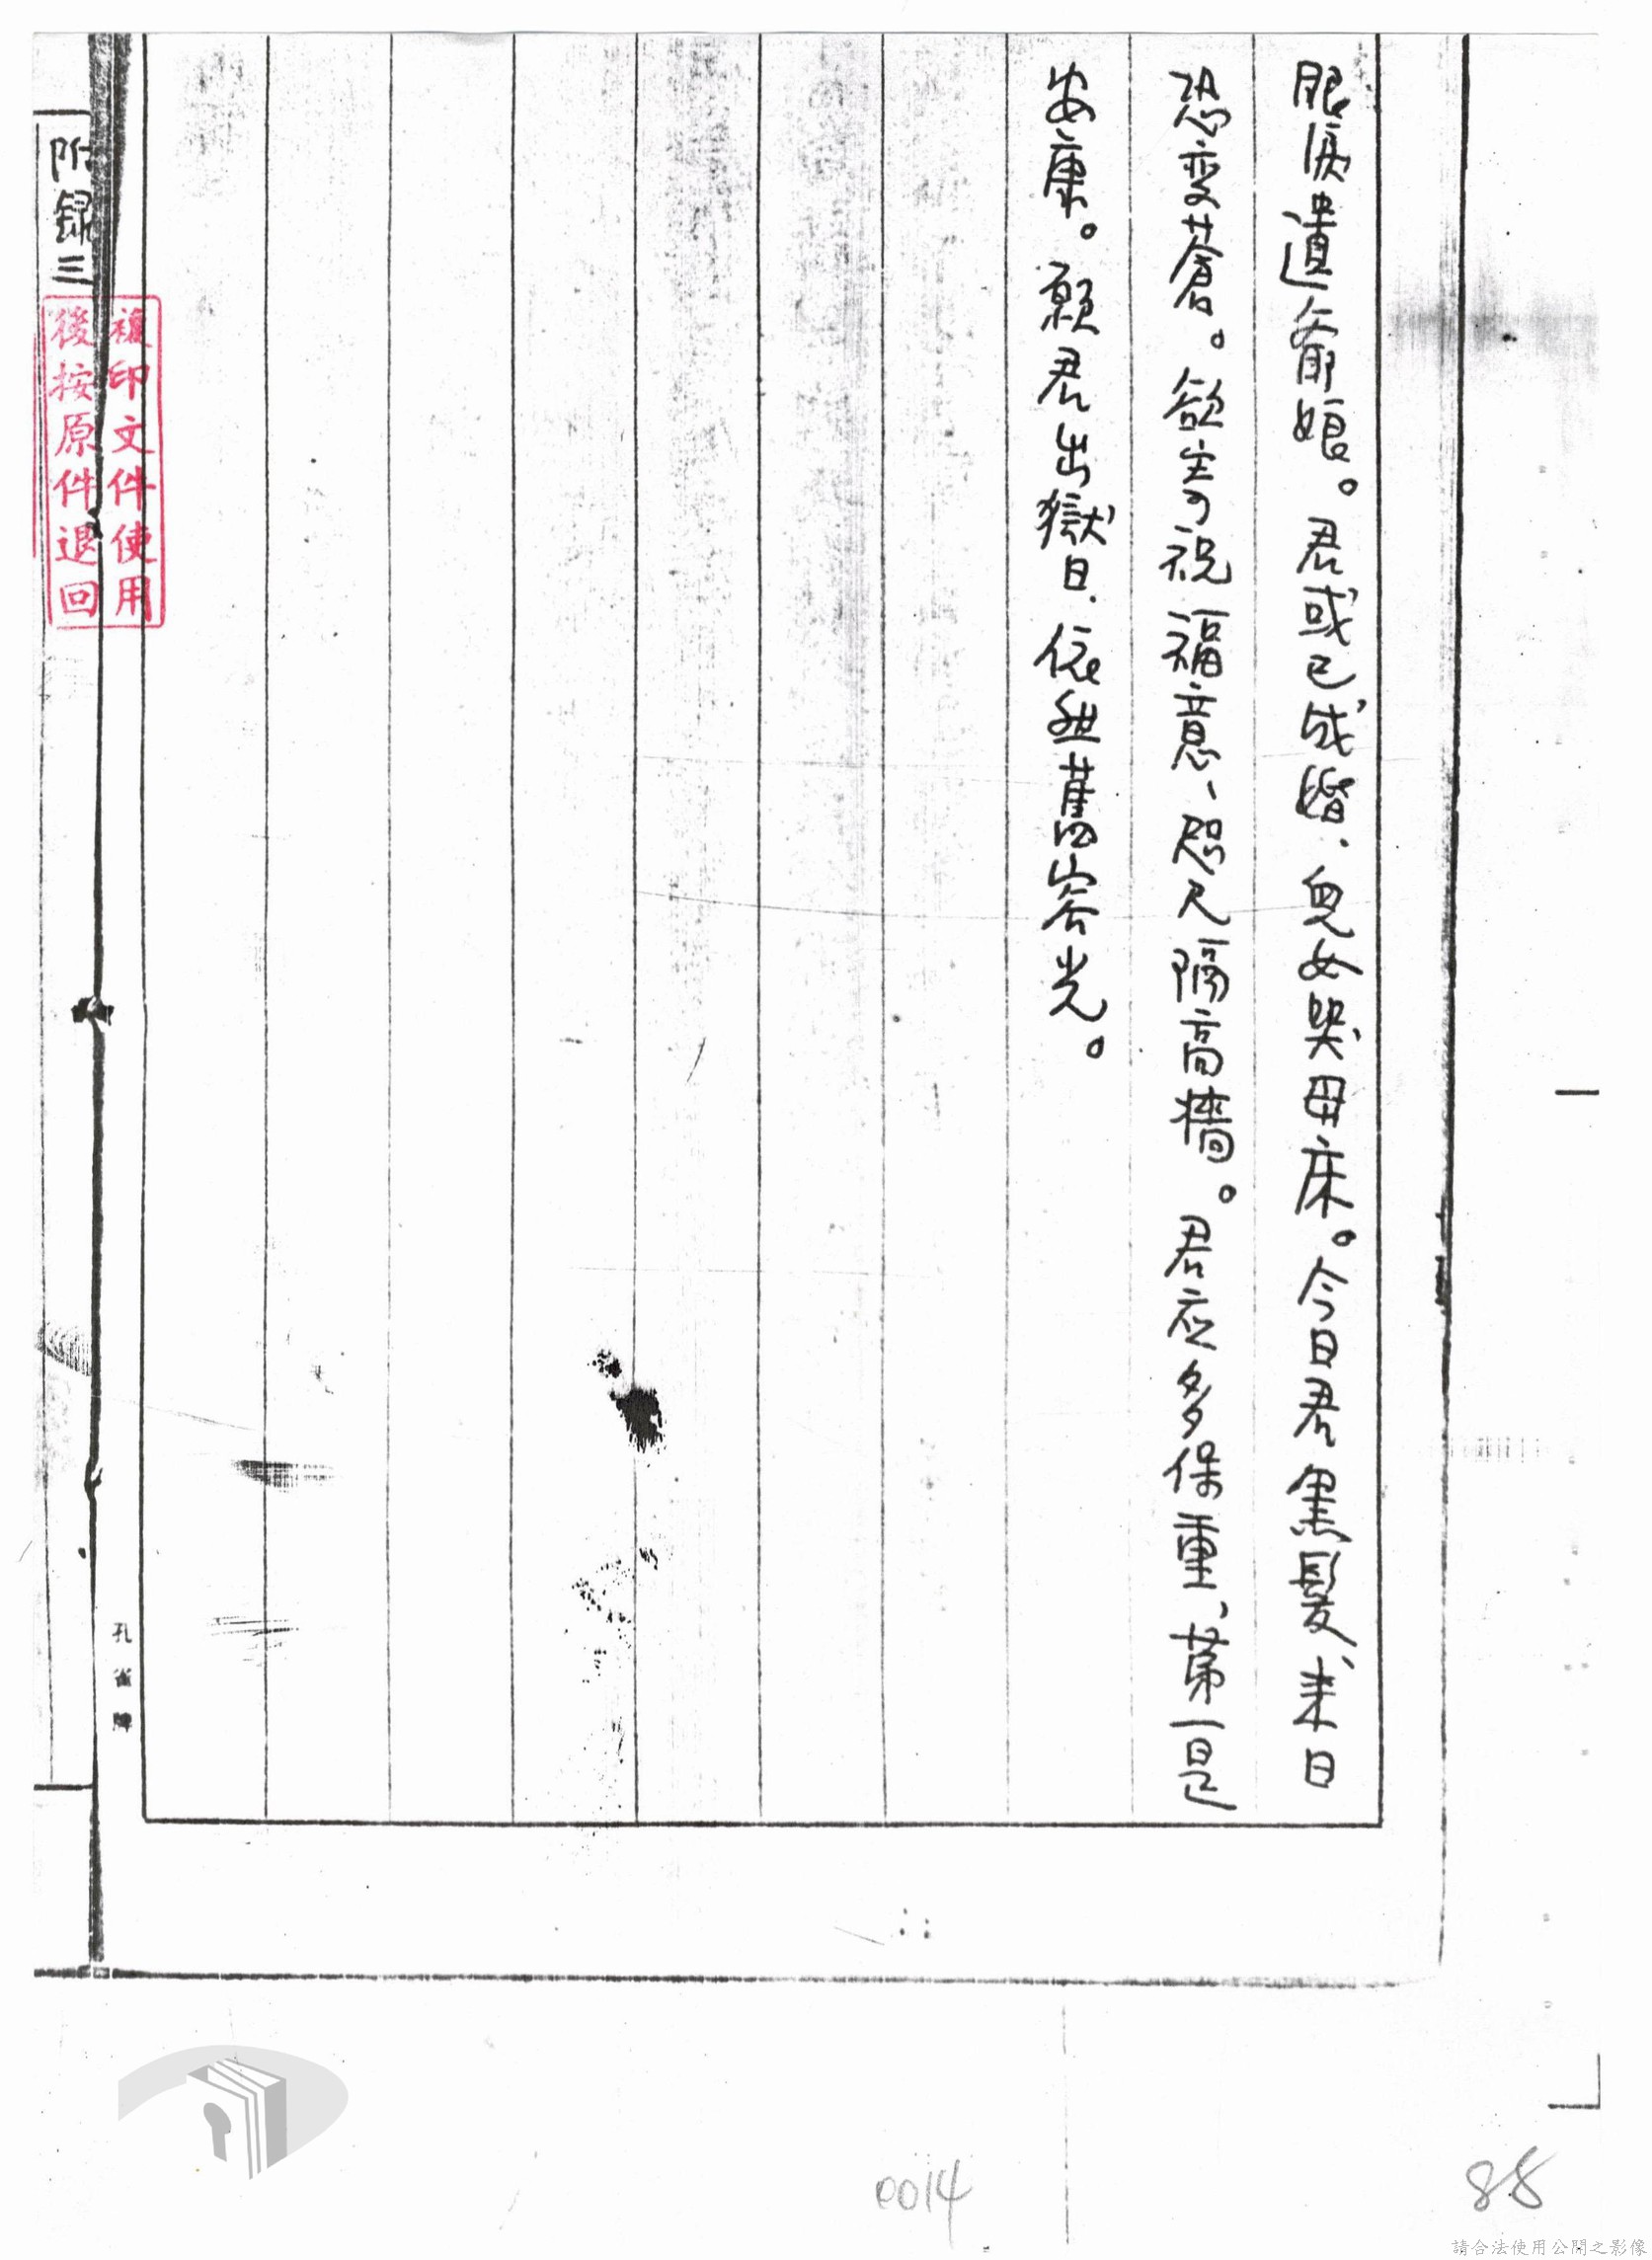 眼淚遺爺娘。君或已成婚、兒女哭母床。今日君黑髮、来日
恐变蒼。欲寄祝福意、咫尺隔高牆。君应多保重、第一是
安康。願君出獄日、依然舊容光。
複印文件使用
後按原件退回
附録三
孔雀牌
0014
88
請合法使用公開之影像